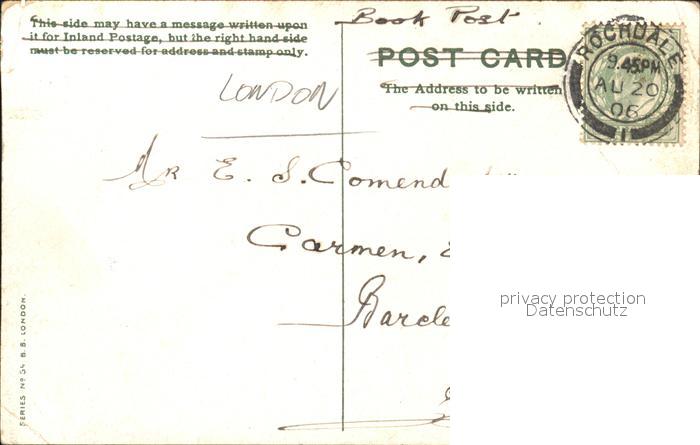 This side may have a message written upon
it for Inland Postage, but the right hand side
must be reserved for address and stamp only.
Book Post
POST CARD
The Address to be written
on this side.
ROCHDALE
9.45PM
AU 20
06
11
LONDON
Mr E. S. Comend
Carmen,
Barce
SERIES No 54 B.B. LONDON.
privacy protection
Datenschutz